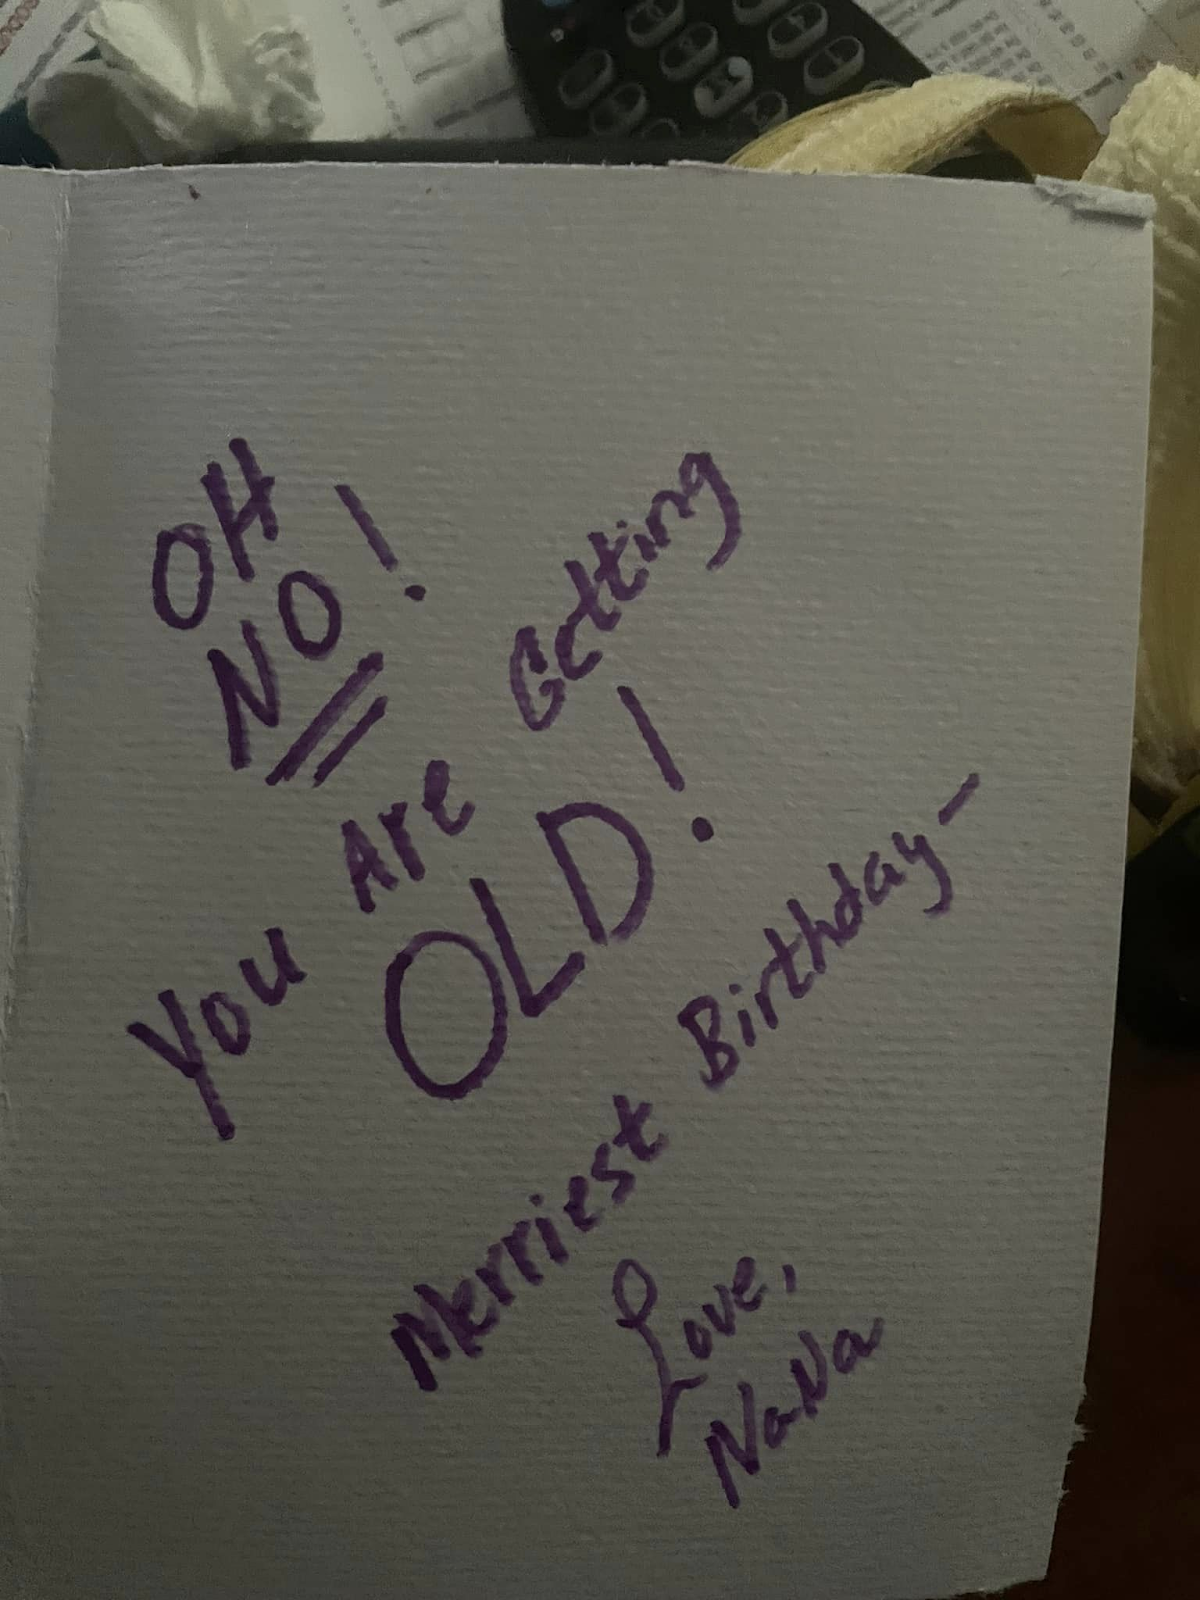 OH
NO!
You Are Getting
OLD!
Merriest Birthday-
Love,
NaNa